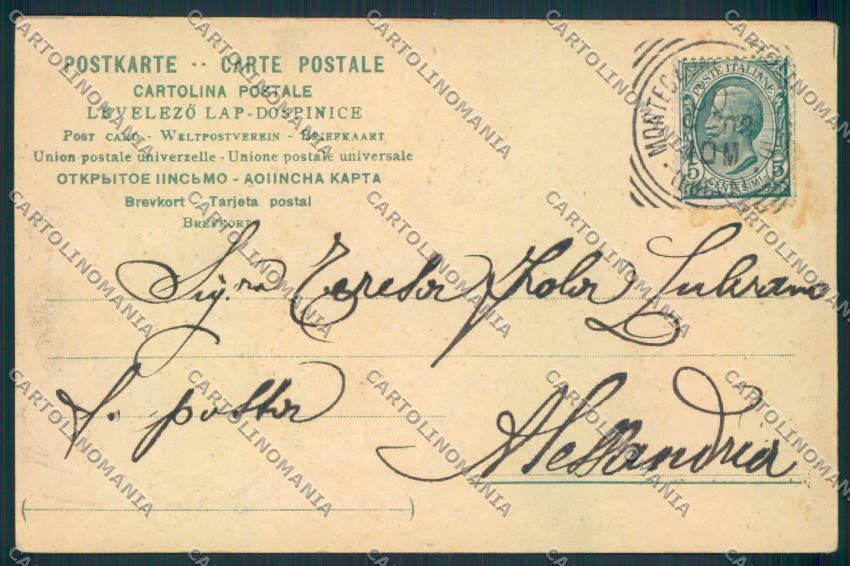 POSTKARTE ·· CARTE POSTALE
CARTOLINA POSTALE
LEVELEZŐ LAP-DOSPINICE
POST CARD - WELTPOSTVEREIN - BRIEFKAART
Union postale univerzelle - Unione postale universale
ОТКРЫТОЕ ІІИСЬМО - АОІІИСНА КАРТА
Brevkort - Tarjeta postal
BREFKORT
POSTE ITALIANE
5 5
CENTESIMI
MONTEC
10M
Sig.ra Teresa
f. posta
Alessandria
CARTOLINOMANIA